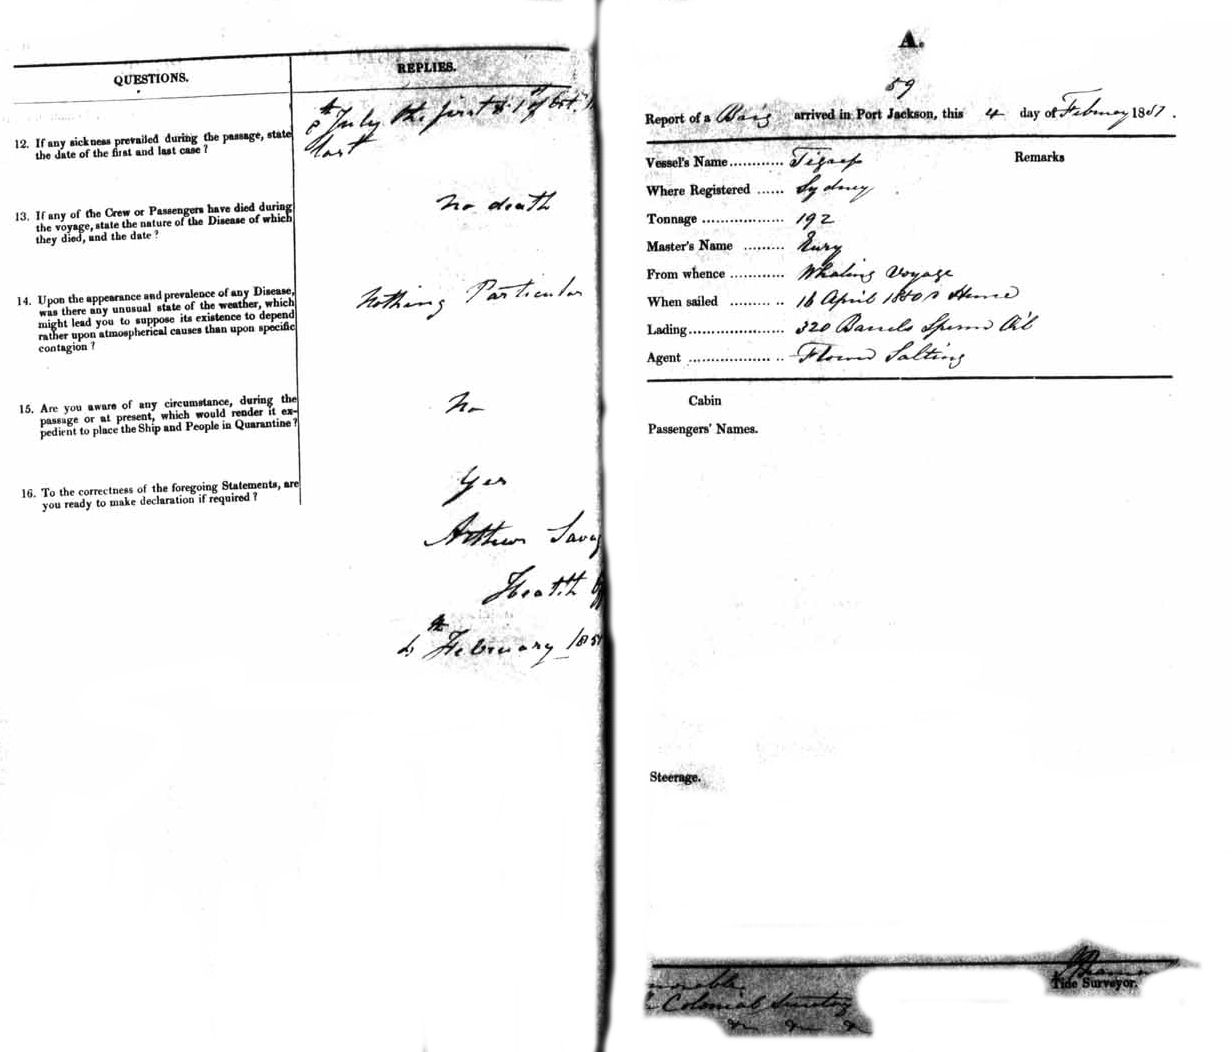 QUESTIONS.
REPLIES.
12. If any sickness prevailed during the passage, state
the date of the first and last case?
July the first & 1st of Oct.
last
13. If any of the Crew or Passengers have died during
the voyage, state the nature of the Disease of which
they died, and the date?
No death
14. Upon the appearance and prevalence of any Disease,
was there any unusual state of the weather, which
might lead you to suppose its existence to depend
rather upon atmospherical causes than upon specific
contagion?
Nothing Particular
15. Are you aware of any circumstance, during the
passage or at present, which would render it ex-
pedient to place the Ship and People in Quarantine?
No
16. To the correctness of the foregoing Statements, are
you ready to make declaration if required?
Yes
Arthur Savag
Health Off
4th February 1851
A.
59
Report of a Brig arrived in Port Jackson, this 4 day of February 1851.
Vessel's Name............ Tigress
Remarks
Where Registered ...... Sydney
Tonnage .................. 192
Master's Name .........
From whence ............ Whaling Voyage
When sailed .......... .. 16 April 1850
Lading...................... 320 Barrels Sperm Oil
Agent .................... .. Flower Salting
Cabin
Passengers' Names.
Steerage.
Tide Surveyor.
Colonial Secretary